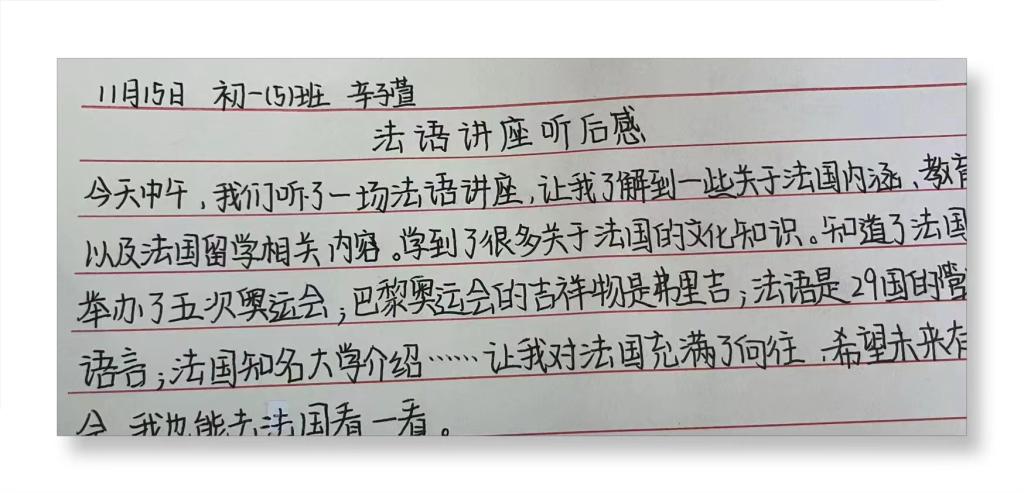 11月15日 初一(5)班 辛子萱
法语讲座听后感
今天中午,我们听了一场法语讲座,让我了解到一些关于法国内涵、教育
以及法国留学相关内容。学到了很多关于法国的文化知识。知道了法国
举办了五次奥运会;巴黎奥运会的吉祥物是弗里吉;法语是29国的
语言;法国知名大学介绍……让我对法国充满了向往,希望未来有
会我也能去法国看一看。